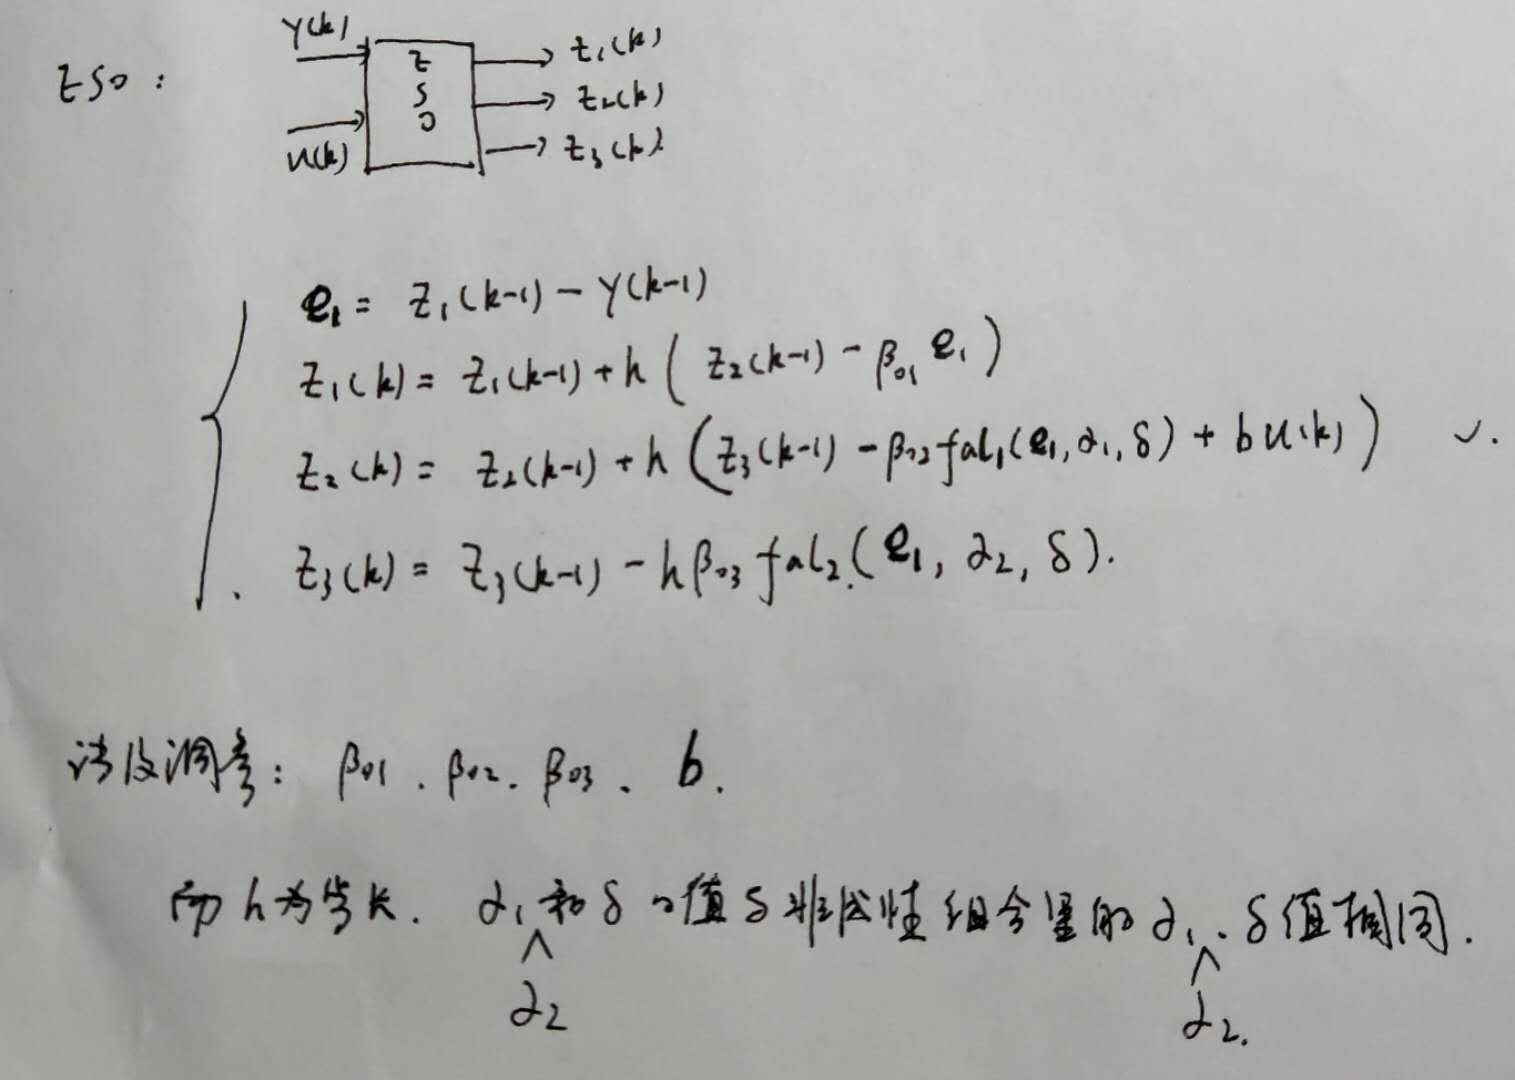 y(k)
ESO:
E
S
O
z₁(k)
z₂(k)
z₃(k)
u(k)
e₁ = z₁(k-1) - y(k-1)
z₁(k) = z₁(k-1) + h ( z₂(k-1) - β₀₁ e₁ )
z₂(k) = z₂(k-1) + h ( z₃(k-1) - β₀₂ fal₁(e₁, α₁, δ) + b u(k) )
z₃(k) = z₃(k-1) - hβ₀₃ fal₂(e₁, α₂, δ).
调参: β₀₁. β₀₂. β₀₃. b.
而 h 为步长. α₁ 和 δ 的值与非线性组合里的 α₁. δ 值相同.
α₂
α₂.